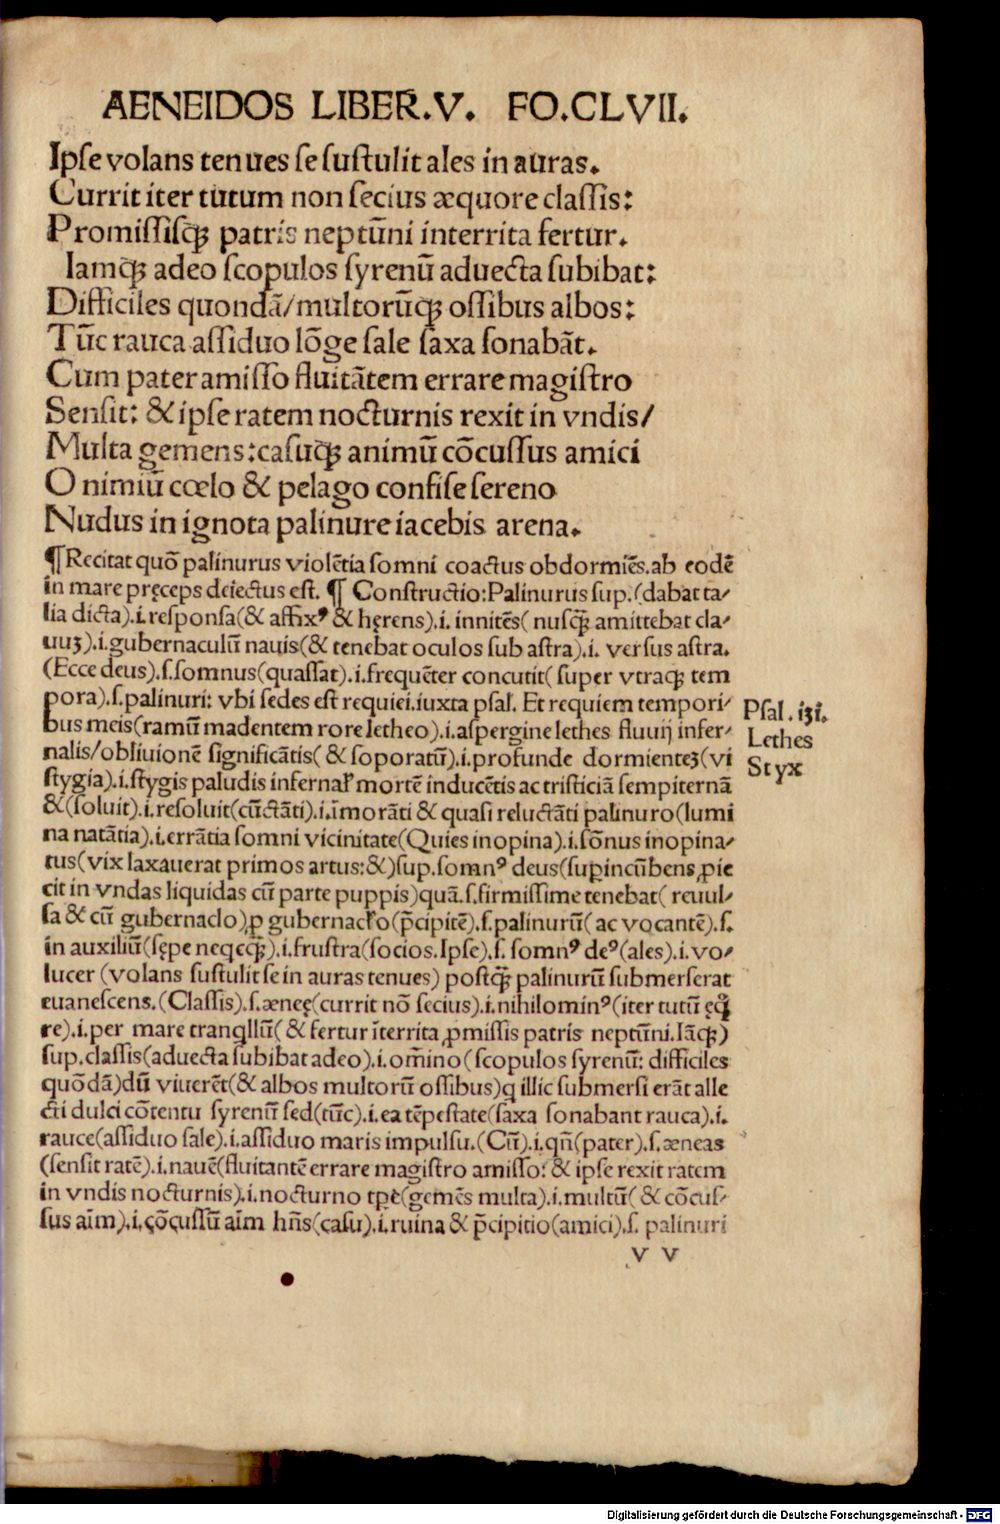 AENEIDOS LIBER.V. FO.CLVII.
Ipse volans tenues se sustulit ales in auras.
Currit iter tutum non secius æquore classis:
Promissisq̃ꝫ patris neptũni interrita fertur.
Iamq̃ꝫ adeo scopulos syrenũ aduecta subibat:
Difficiles quondã/multorũq̃ꝫ ossibus albos:
Tũc rauca assiduo lõge sale saxa sonabãt.
Cum pater amisso fluitãtem errare magistro
Sensit: & ipse ratem nocturnis rexit in vndis/
Multa gemens:casuq̃ꝫ animũ cõcussus amici
O nimiũ cœlo & pelago confise sereno
Nudus in ignota palinure iacebis arena.
¶Recitat quõ palinurus violẽtia somni coactus obdormiẽs.ab eodẽ
in mare pręceps deiectus est. ¶ Constructio:Palinurus sup.(dabat ta/
lia dicta).i.responsa(& affixꝰ & hęrens).i. innitẽs( nusq̃ꝫ amittebat cla/
uuʒ).i.gubernaculũ nauis(& tenebat oculos sub astra).i. versus astra.
(Ecce deus).s.somnus(quassat).i.frequẽter concutit( super vtraqꝫ tem
pora).s.palinuri: vbi sedes est requiei.iuxta psal. Et requiem tempori/
bus meis(ramũ madentem rore letheo).i.aspergine lethes fluuij infer/
nalis/obliuionẽ significãtis( & soporatũ).i.profunde dormienteʒ(vi
stygia).i.stygis paludis infernal' mortẽ inducẽtis ac tristiciã sempiternã
&(soluit).i.resoluit(cũctãti).i.ĩmorãti & quasi reluctãti palinuro(lumi
na natãtia).i.errãtia somni vicinitate(Quies inopina).i.sõnus inopina/
tus(vix laxauerat primos artus:&)sup.somnꝰ deus(suꝑincũbens ꝓie
cit in vndas liquidas cũ parte puppis)quã.s.firmissime tenebat( reuul/
sa & cũ gubernaclo)ꝓ gubernacl'o(p̃cipitẽ).s.palinurũ( ac vocantẽ).s.
in auxiliũ(sępe neqcq̃ꝫ).i.frustra(socios.Ipse).s. somnꝰ deꝰ(ales).i.vo/
lucer (volans sustulit se in auras tenues) postq̃ꝫ palinurũ submerserat
euanescens.(Classis).s.ænęę(currit nõ secius).i.nihilominꝰ(iter tutũ ęq̃
re).i.per mare tranqllũ( & fertur ĩterrita ꝓmissis patris neptũni.Iãq̃ꝫ)
sup.classis(aduecta subibat adeo).i.om̃ino(scopulos syrenũ: difficiles
quõdã)dũ viuerẽt(& albos multorũ ossibus)q illic submersi erãt alle
cti dulci cõtentu syrenũ sed(tũc).i.ea tẽpestate(saxa sonabant rauca).i.
rauce(assiduo sale).i.assiduo maris impulsu.(Cũ).i.qñ(pater).s.æneas
(sensit ratẽ).i.nauẽ(fluitantẽ errare magistro amisso: & ipse rexit ratem
in vndis nocturnis).i.nocturno tꝑe(gemẽs multa).i.multũ( & cõcus/
sus aĩm).i.cõcussũ aĩm hñs(casu).i.ruina & p̃cipitio(amici).s. palinuri
Psal.131.
Lethes
Styx
v v
Digitalisierung gefördert durch die Deutsche Forschungsgemeinschaft - DFG